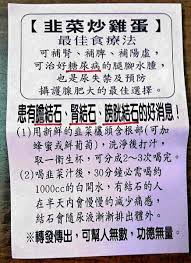 【韭菜炒雞蛋】
最佳食療法
可補腎、補脾、補陽虛,
可治好糖尿病的腿腳水腫,
也是尿失禁及預防
攝護腺肥大的最佳選擇。
患有膽結石、腎結石、膀胱結石的好消息!
(1)用新鮮的韭菜欉頭含根部(可加
蜂蜜或鮮葡萄),洗淨後打汁,
取一衛生杯,可分成2~3次喝完。
(2)喝韭菜汁後,30分鐘必需喝約
1000cc的白開水,有結石的人
在半天內會慢慢的減少痛感,
結石會隨尿液漸漸排出體外。
※轉發傳出,可幫人無數,功德無量。